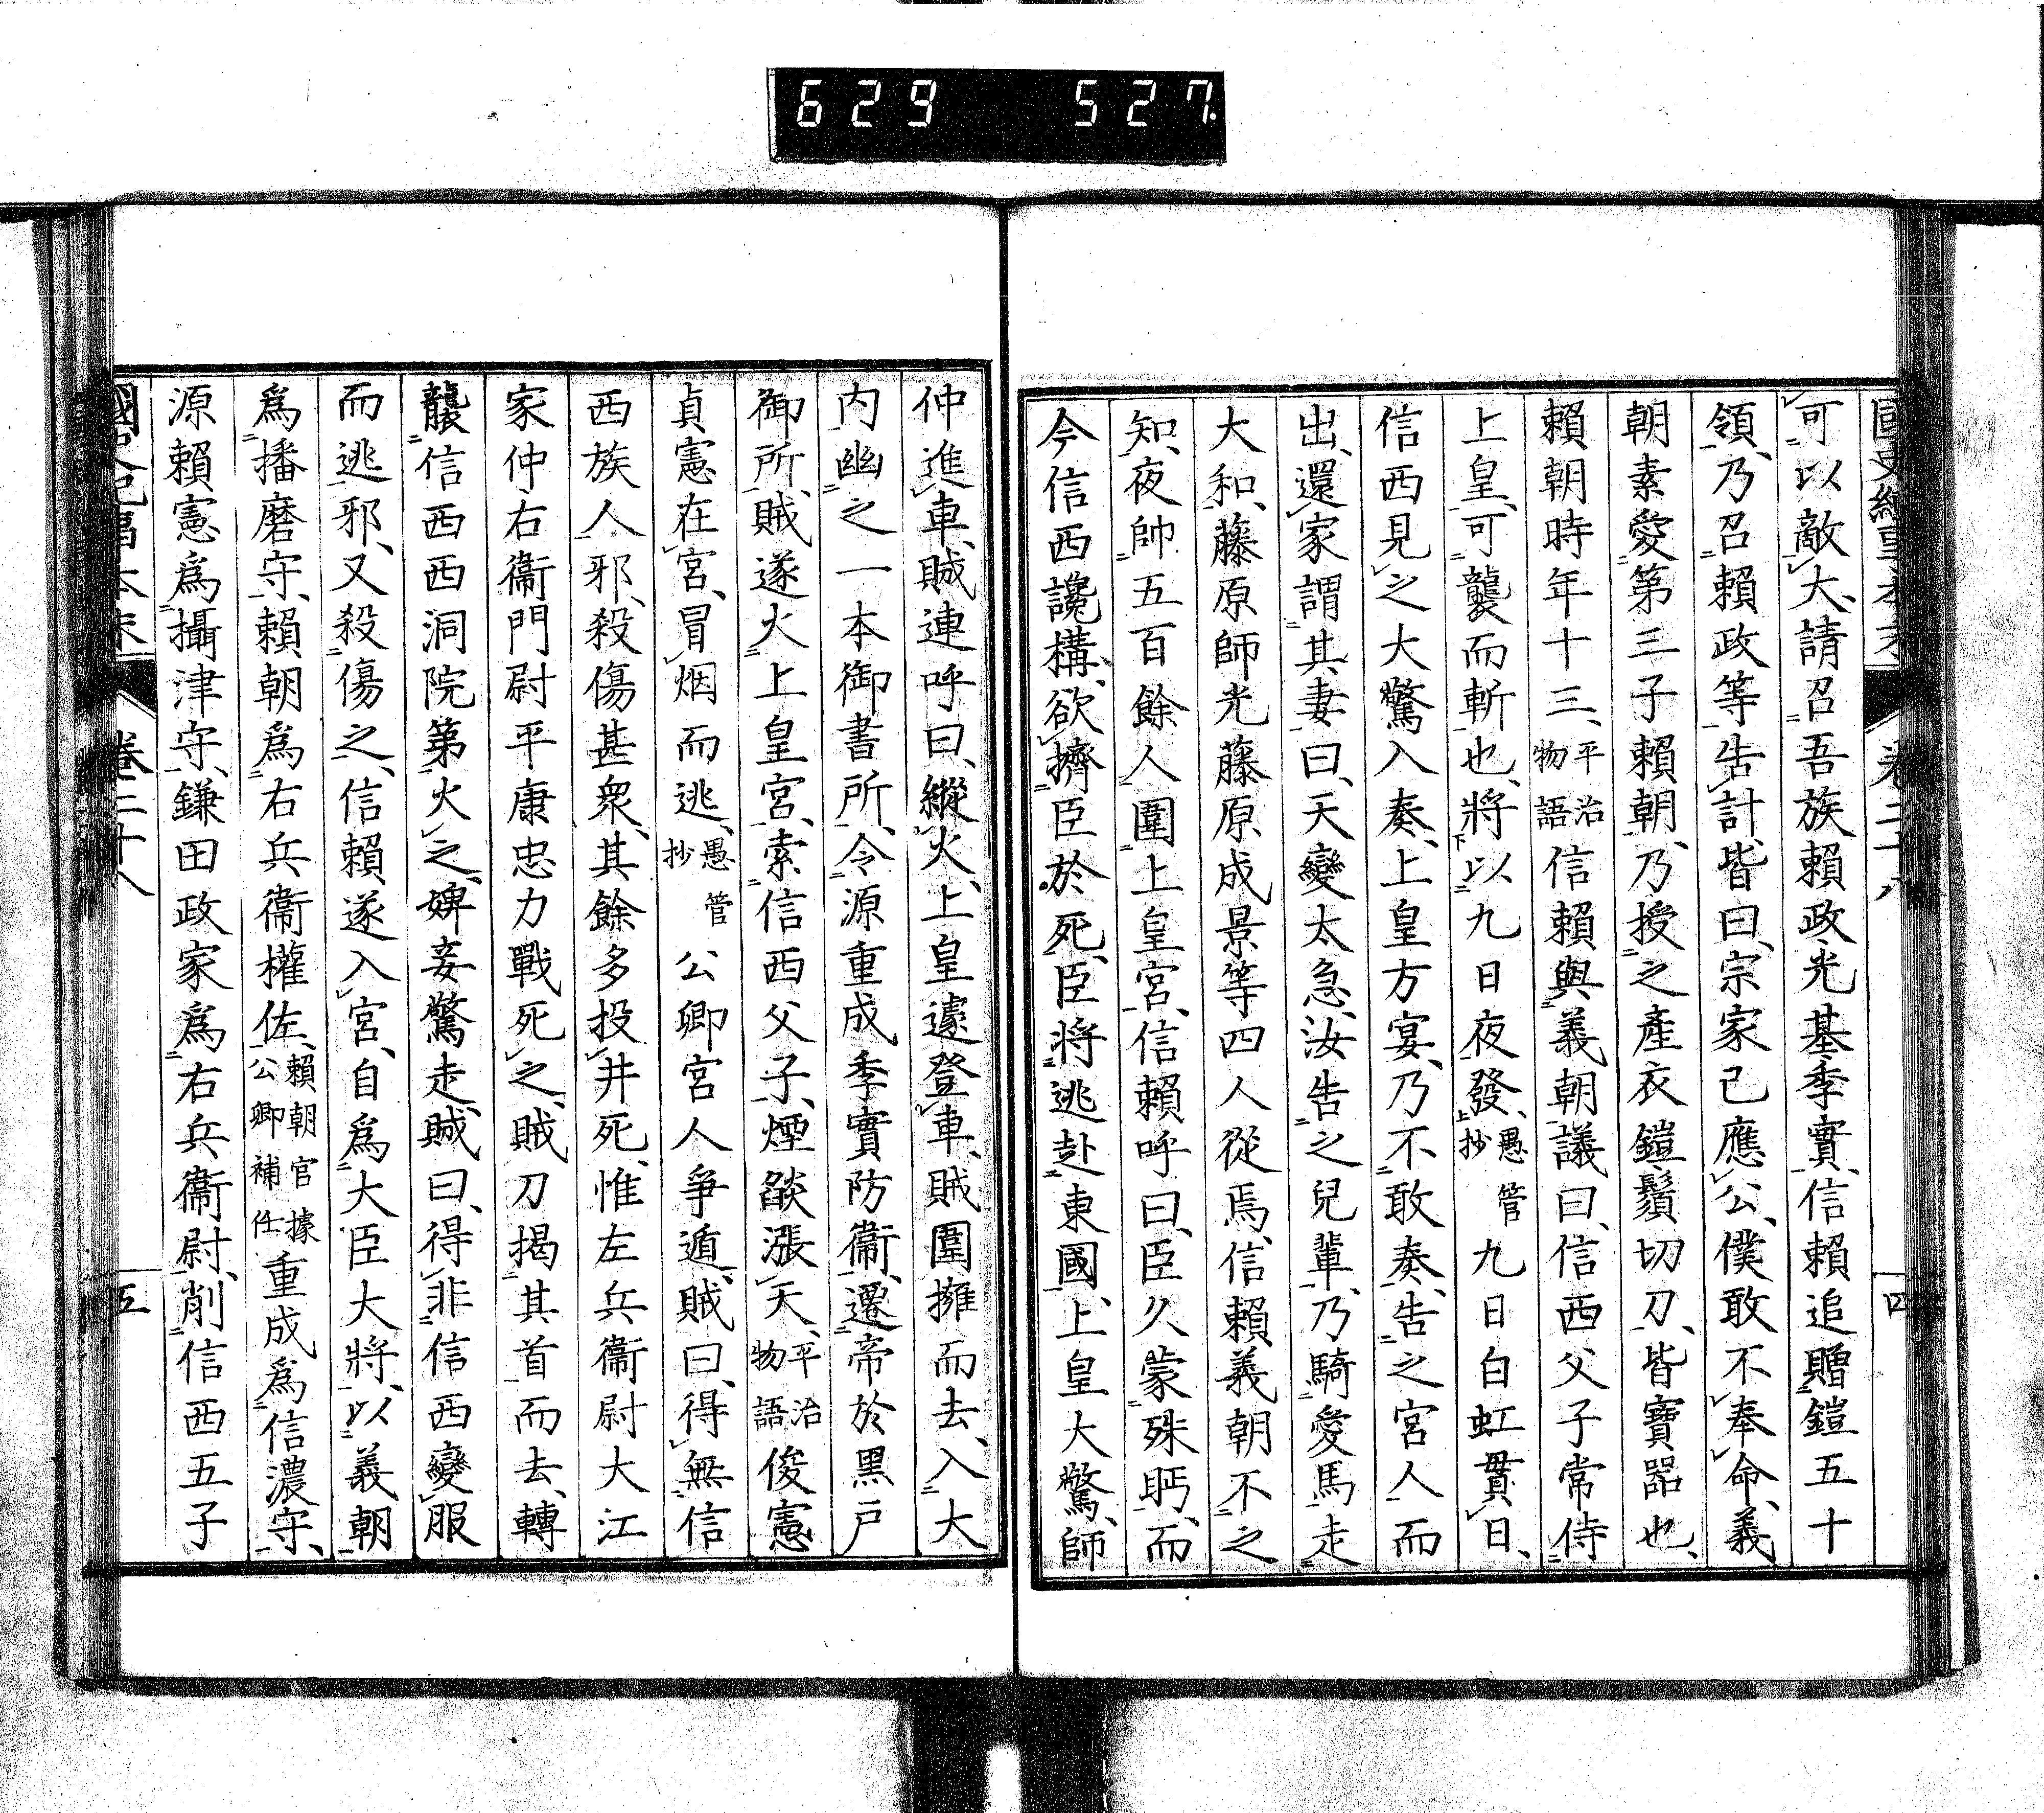 629 527.
國史紀事本末 卷二十八 四
可以敵大、請召吾族賴政光基季實、信賴追贈鎧五十
領、乃召賴政等告計、皆曰、宗家已應公、僕敢不奉命、義
朝素愛第三子賴朝、乃授之產衣鎧鬚切刀、皆寶器也、
賴朝時年十三、平治物語信賴與義朝議曰、信西父子常侍
上皇、可襲而斬也、將以九日夜發、愚管抄九日白虹貫日、
信西見之大驚入奏、上皇方宴、乃不敢奏、告之宮人而
出、還家謂其妻曰、天變太急、汝告之兒輩、乃騎愛馬走
大和、藤原師光藤原成景等四人從焉、信賴義朝不之
知、夜帥五百餘人圍上皇宮、信賴呼曰、臣久蒙殊眄、而
今信西讒構、欲擠臣於死、臣將逃赴東國、上皇大驚、師
仲進車、賊連呼曰、縱火、上皇遽登車、賊圍擁而去、入大
內幽之一本御書所、令源重成季實防衞、遷帝於黑戶
御所、賊遂火上皇宮、索信西父子、煙燄漲天、平治物語俊憲
貞憲在宮、冒烟而逃、愚管抄公卿宮人爭遁、賊曰、得無信
西族人邪、殺傷甚衆、其餘多投井死、惟左兵衞尉大江
家仲右衞門尉平康忠力戰死之、賊刀揭其首而去、轉
襲信西西洞院第火之、婢妾驚走、賊曰、得非信西變服
而逃邪、又殺傷之、信賴遂入宮、自爲大臣大將、以義朝
爲播磨守、賴朝爲右兵衞權佐、賴朝官據公卿補任重成爲信濃守、
源賴憲爲攝津守、鎌田政家爲右兵衞尉、削信西五子
國史紀事本末 卷二十八 五